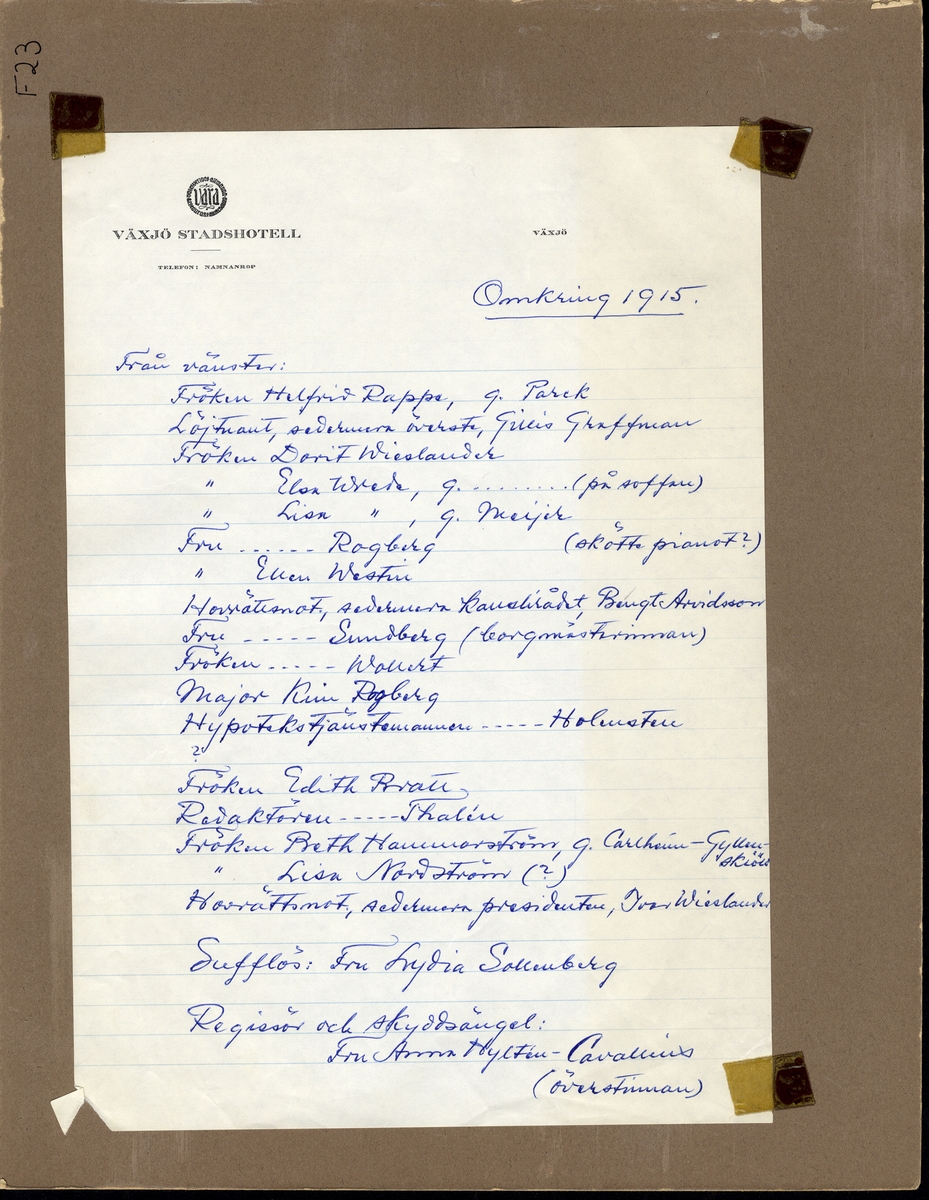 F23
Vara
VÄXJÖ STADSHOTELL
VÄXJÖ
TELEFON: NAMNANROP
Omkring 1915.
Från vänster:
Fröken Helfrid Rappe, g. Parck
Löjtnant, sedermera överste, Gillis Graffman
Fröken Dorit Wieslander
" Elsa Wrede, g. ......... (på soffan)
" Lisa " , g. Meijer
Fru ...... Rogberg (skötte pianot?)
" Ellen Westin
Hovrättsnot, sedermera kanslirådet, Bengt Arvidsson
Fru ----- Sundberg (borgmästarinnan)
Fröken ----- Wollert
Major Kim Rogberg
Hypotekstjänstemannen ----- Holmsten
?
Fröken Edith Bratt
Redaktören ----- Thalén
Fröken Beth Hammarström, g. Carlheim-Gyllen-
skiöld
" Lisa Nordström (?)
Hovrättsnot, sedermera presidenten, Ivar Wieslander
Sufflös: Fru Lydia Sollenberg
Regissör och skyddsängel:
Fru Anna Hyltén-Cavallius
(överstinnan)